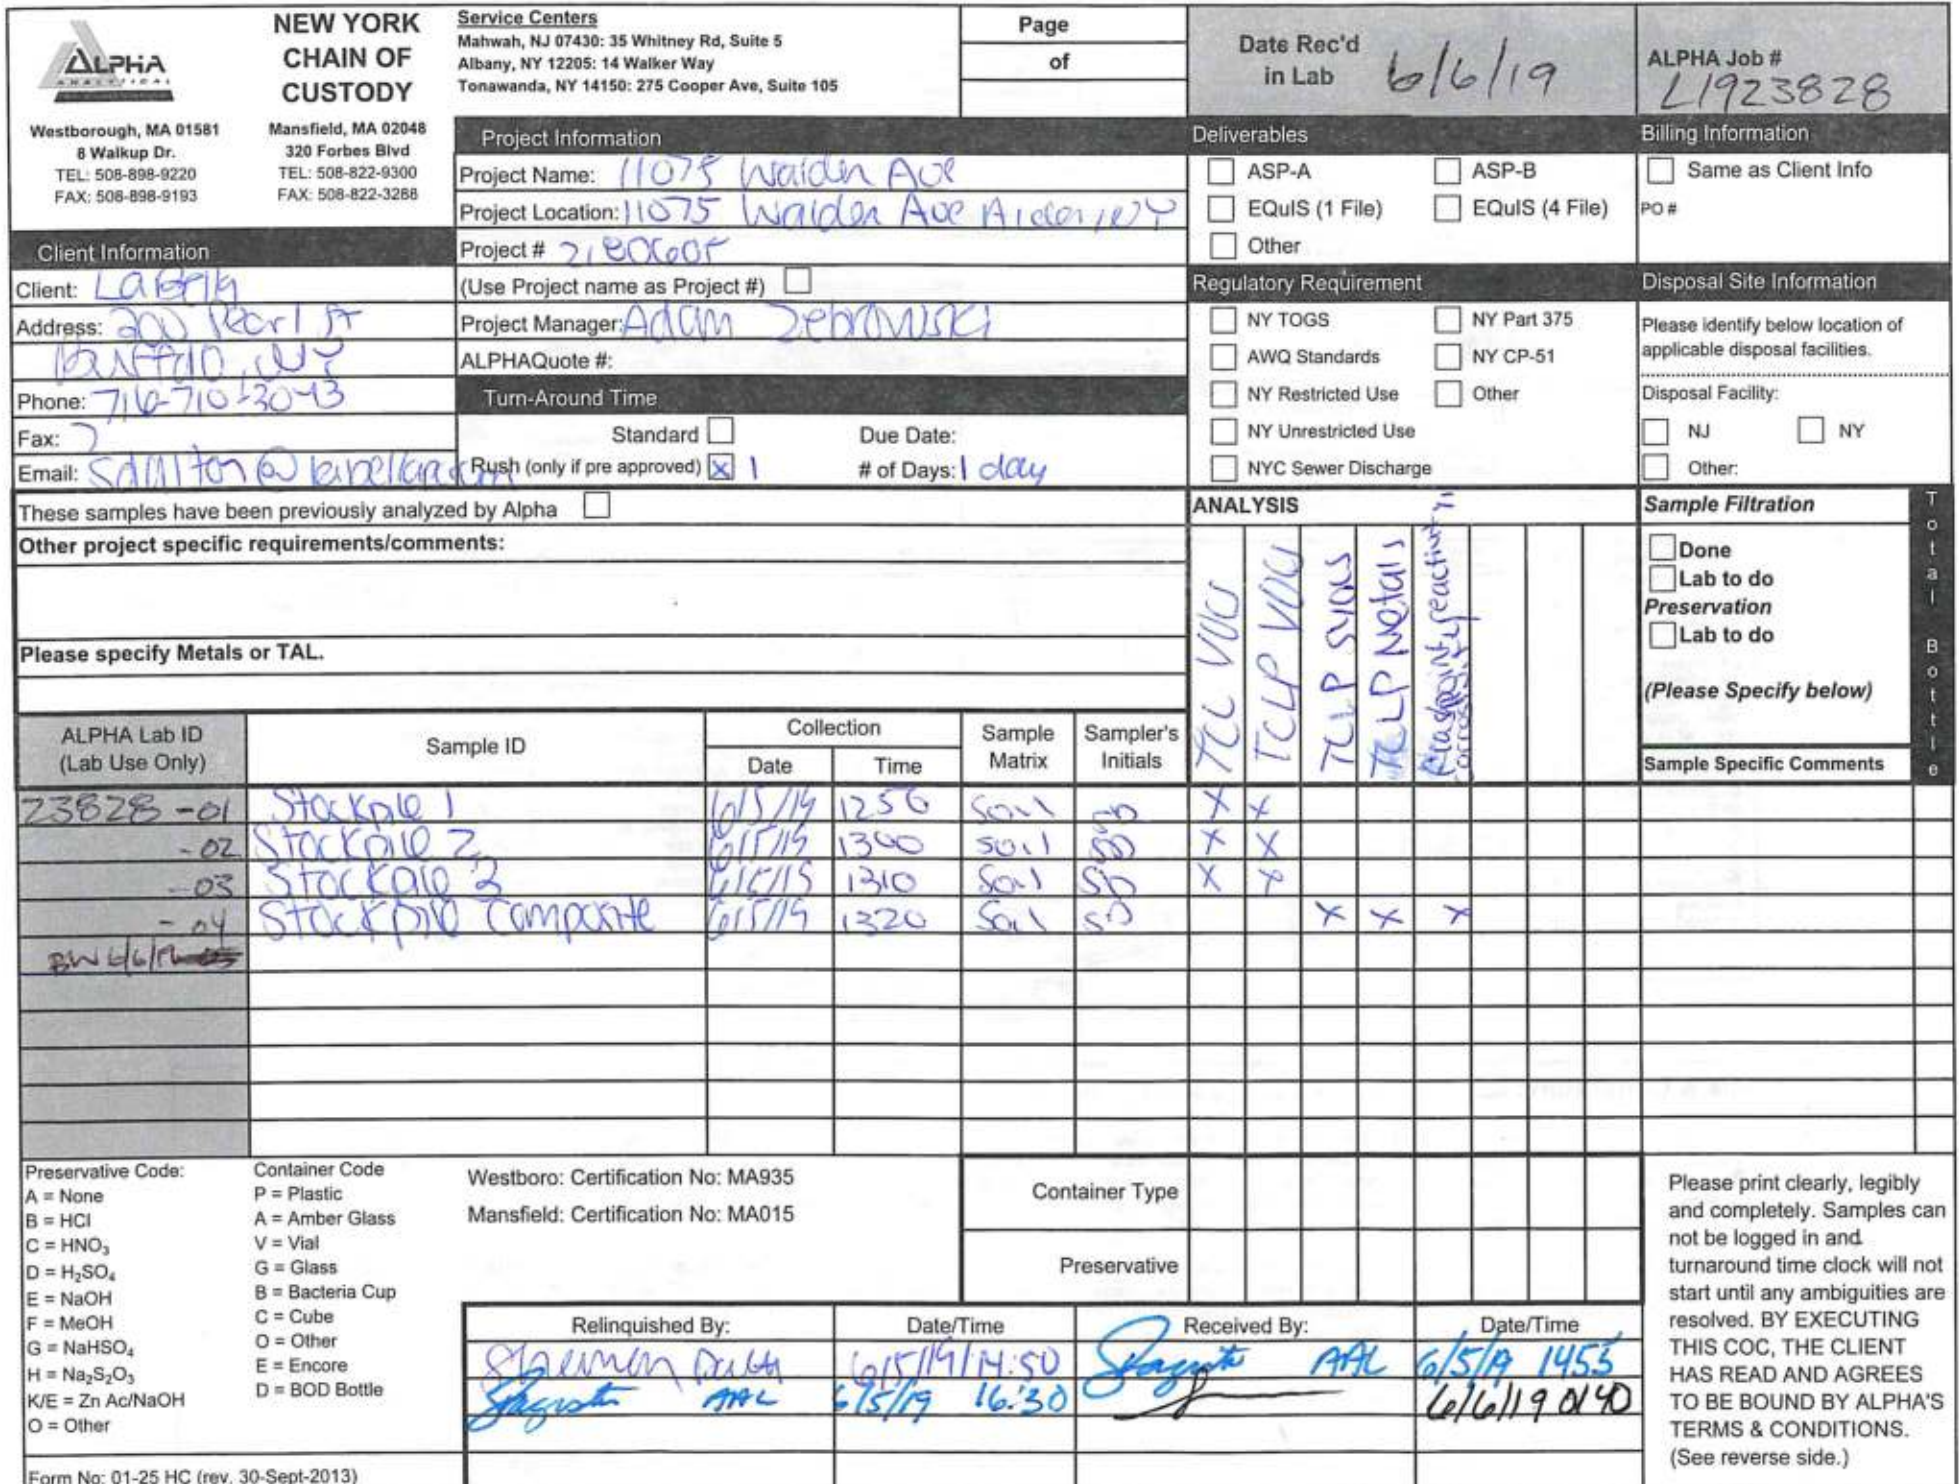 ALPHA
ANALYTICAL
NEW YORK
CHAIN OF
CUSTODY
Westborough, MA 01581
8 Walkup Dr.
TEL: 508-898-9220
FAX: 508-898-9193
Mansfield, MA 02048
320 Forbes Blvd
TEL: 508-822-9300
FAX: 508-822-3288
Service Centers
Mahwah, NJ 07430: 35 Whitney Rd, Suite 5
Albany, NY 12205: 14 Walker Way
Tonawanda, NY 14150: 275 Cooper Ave, Suite 105
Page
of
Date Rec'd
in Lab 6/6/19
ALPHA Job #
L1923828
Project Information
Project Name: 11075 Walden Ave
Project Location: 11075 Walden Ave Alden, NY
Project # 2180605
(Use Project name as Project #)
Project Manager: Adam Zebrowski
ALPHAQuote #:
Client Information
Client: LaBella
Address: 300 Pearl St
Buffalo, NY
Phone: 716-710-3043
Fax:
Email:
Turn-Around Time
Standard Due Date:
Rush (only if pre approved) X 1 # of Days: 1 day
Deliverables
ASP-A ASP-B
EQuIS (1 File) EQuIS (4 File)
Other
Regulatory Requirement
NY TOGS NY Part 375
AWQ Standards NY CP-51
NY Restricted Use Other
NY Unrestricted Use
NYC Sewer Discharge
Billing Information
Same as Client Info
PO #
Disposal Site Information
Please identify below location of
applicable disposal facilities.
Disposal Facility:
NJ NY
Other:
These samples have been previously analyzed by Alpha
Other project specific requirements/comments:
Please specify Metals or TAL.
ANALYSIS
TCL VOCs
TCLP VOCs
TCLP SVOCs
TCLP Metals
Flashpoint, reactivity,
Sample Filtration
Done
Lab to do
Preservation
Lab to do
(Please Specify below)
Sample Specific Comments
Total Bottle
ALPHA Lab ID
(Lab Use Only)
Sample ID
Collection
Date Time
Sample
Matrix
Sampler's
Initials
23828-01 Stockpile 1 6/5/19 1250 Soil SD X X
-02 Stockpile 2 6/5/19 1300 Soil SD X X
-03 Stockpile 3 6/5/19 1310 Soil SD X X
-04 Stockpile Composite 6/5/19 1320 Soil SD X X X
BW 6/6/19
Preservative Code:
A = None
B = HCl
C = HNO₃
D = H₂SO₄
E = NaOH
F = MeOH
G = NaHSO₄
H = Na₂S₂O₃
K/E = Zn Ac/NaOH
O = Other
Container Code
P = Plastic
A = Amber Glass
V = Vial
G = Glass
B = Bacteria Cup
C = Cube
O = Other
E = Encore
D = BOD Bottle
Westboro: Certification No: MA935
Mansfield: Certification No: MA015
Container Type
Preservative
Relinquished By: Date/Time Received By: Date/Time
6/5/19/14:50 AAL 6/5/19 1455
AAL 6/5/19 16:30 6/6/19 0140
Please print clearly, legibly
and completely. Samples can
not be logged in and
turnaround time clock will not
start until any ambiguities are
resolved. BY EXECUTING
THIS COC, THE CLIENT
HAS READ AND AGREES
TO BE BOUND BY ALPHA'S
TERMS & CONDITIONS.
(See reverse side.)
Form No: 01-25 HC (rev. 30-Sept-2013)